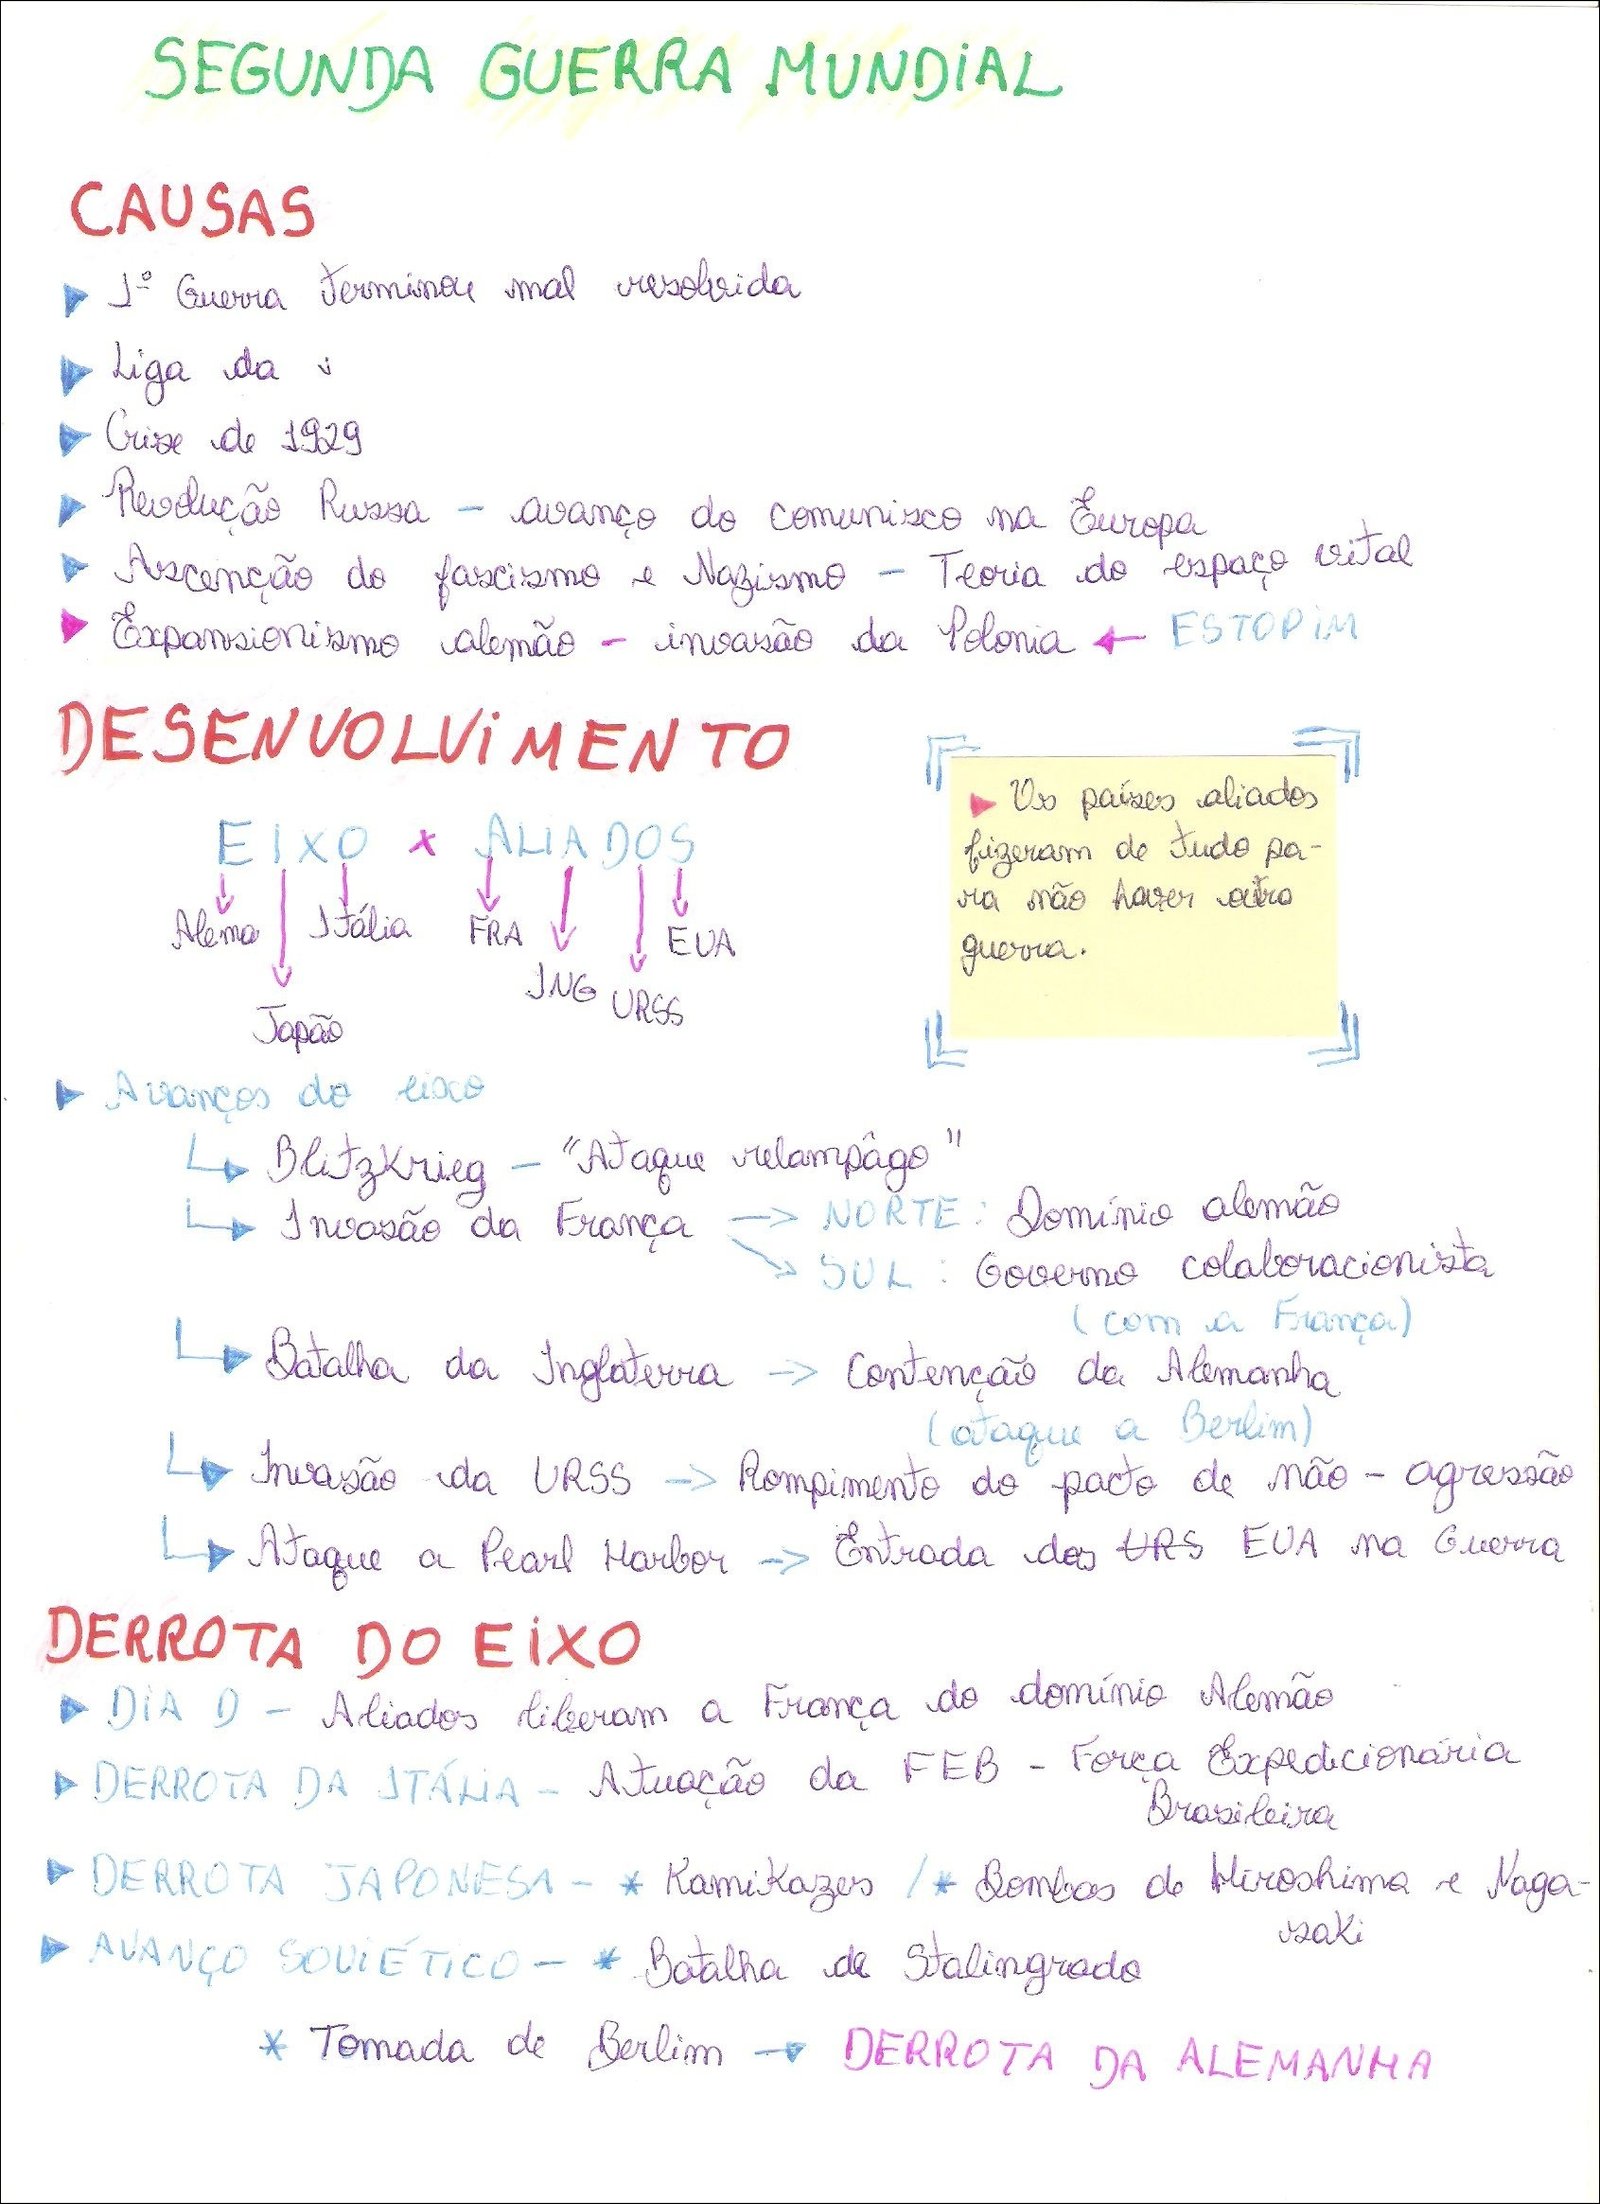 SEGUNDA GUERRA MUNDIAL
CAUSAS
1º Guerra terminou mal resolvida
Liga da
Crise de 1929
Revolução Russa - avanço do comunisco na Europa
Ascenção do fascismo e Nazismo - Teoria do espaço vital
Expansionismo alemão - invasão da Polonia ← ESTOPIM
DESENVOLVIMENTO
EIXO x ALIADOS
Alema Itália FRA EUA
Japão ING URSS
Os países aliados
fizeram de tudo pa-
ra não haver outro
guerra.
Avanços do eixo
Blitzkrieg - "Ataque relampâgo"
Invasão da França → NORTE: Domínio alemão
SUL: Governo colaboracionista
(com a França)
Batalha da Inglaterra → Contenção da Alemanha
(ataque a Berlim)
Invasão da URSS → Rompimento do pacto de não-agressão
Ataque a Pearl Harbor → Entrada dos URS EUA na Guerra
DERROTA DO EIXO
DIA D - Aliados liberam a França do domínio Alemão
DERROTA DA ITÁLIA - Atuação da FEB - Força Expedicionária
Brasileira
DERROTA JAPONESA - * Kamikazes / * Bombas de Hiroshima e Naga-
saki
AVANÇO SOVIÉTICO - * Batalha de Stalingrado
* Tomada de Berlim → DERROTA DA ALEMANHA